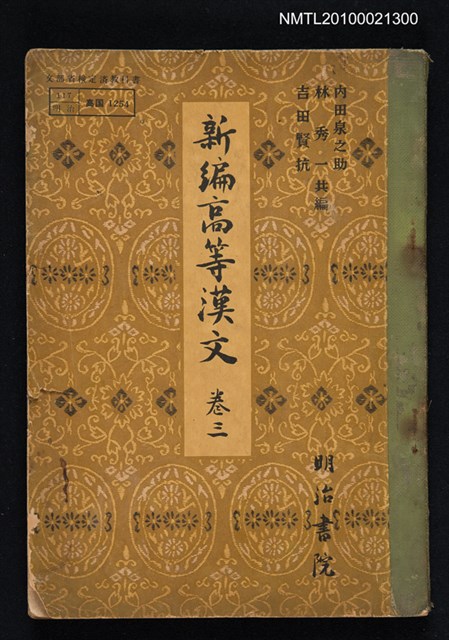 NMTL20100021300
文部省検定済教科書
117
明治
高国 1254
内田泉之助
林秀一共編
吉田賢抗
新編高等漢文 巻三
明治書院